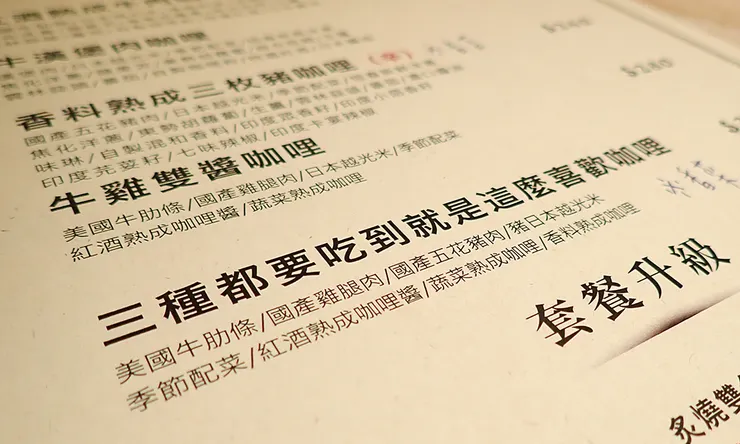 牛漢堡肉咖哩
香料熟成三枚豬咖哩
$280
國產五花豬肉/日本越光米/季節配菜
焦化洋蔥/東勢胡蘿蔔/生薑
味琳/自製混和香料/印度混香籽/印度小茴香籽
印度芫荽籽/七味辣椒/印度卡宴辣椒
牛雞雙醬咖哩
美國牛肋條/國產雞腿肉/日本越光米/季節配菜
紅酒熟成咖哩醬/蔬菜熟成咖哩
三種都要吃到就是這麼喜歡咖哩
美國牛肋條/國產雞腿肉/國產五花豬肉/豬日本越光米
季節配菜/紅酒熟成咖哩醬/蔬菜熟成咖哩/香料熟成咖哩
套餐升級
炙燒雙